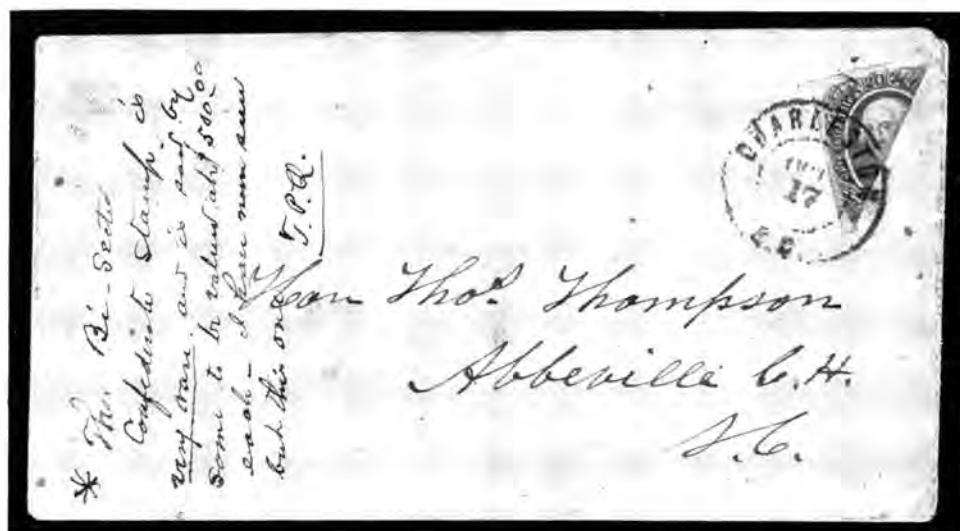 * This Bi-Sected
Confederate Stamp. is
very rare, and is said by
some to be valued at $500.00
each – I have never seen
but this one
J.P.Q.
CHARLESTON
17
S.C.
Hon Thos Thompson
Abbeville C.H.
S.C.